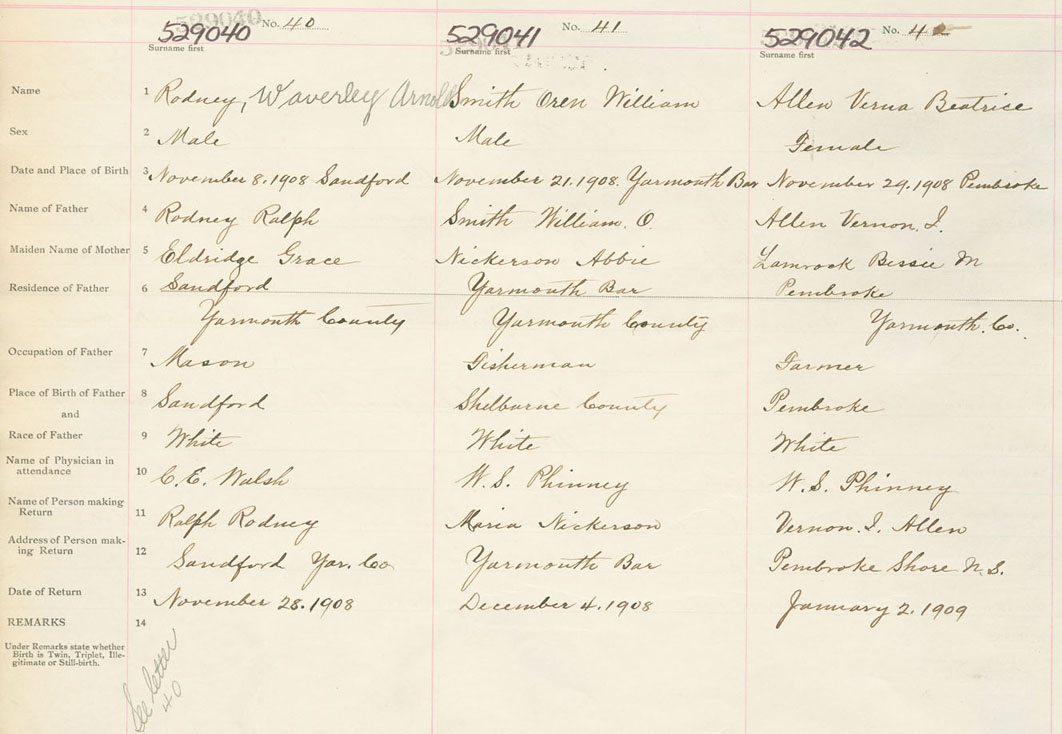 529040 No. 40 529041 No. 41 529042 No. 4
Surname first Surname first Surname first
Name 1 Rodney, Waverley Arnold Smith Oren William Allen Verna Beatrice
Sex 2 Male Male Female
Date and Place of Birth 3 November 8. 1908 Sandford November 21. 1908. Yarmouth Bar November 29. 1908 Pembroke
Name of Father 4 Rodney Ralph Smith William. O. Allen Vernon. I.
Maiden Name of Mother 5 Eldridge Grace Nickerson Abbie Lamrock Bessie M
Residence of Father 6 Sandford Yarmouth Bar Pembroke
Yarmouth County Yarmouth County Yarmouth. Co.
Occupation of Father 7 Mason Fisherman Farmer
Place of Birth of Father 8 Sandford Shelburne County Pembroke
and
Race of Father 9 White White White
Name of Physician in
attendance 10 C. E. Walsh W. S. Phinney W. S. Phinney
Name of Person making
Return 11 Ralph Rodney Maria Nickerson Vernon. I. Allen
Address of Person mak-
ing Return 12 Sandford Yar. Co Yarmouth Bar Pembroke Shore N. S.
Date of Return 13 November 28. 1908 December 4. 1908 January 2. 1909
REMARKS 14
Under Remarks state whether
Birth is Twin, Triplet, Ille-
gitimate or Still-birth.
See letter
40